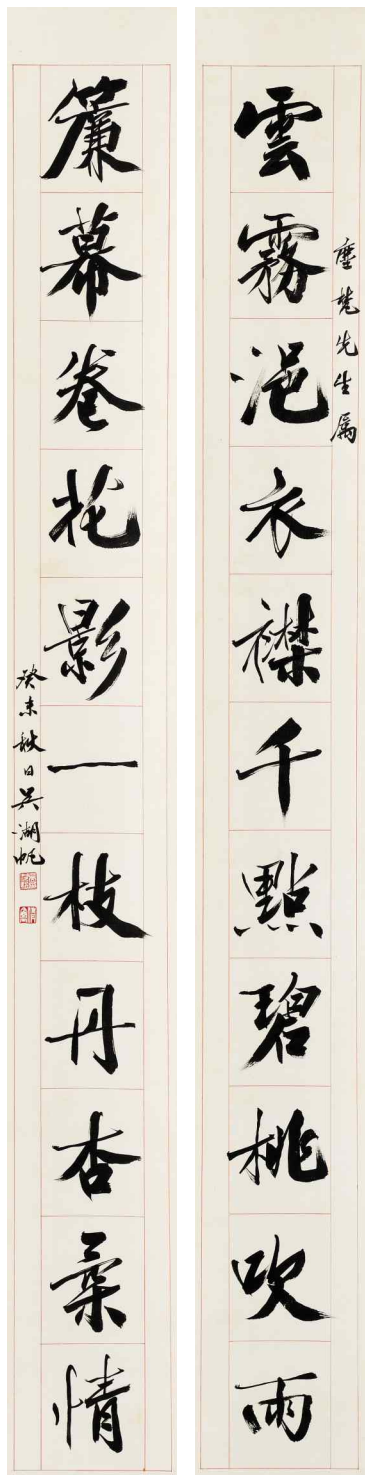 雲霧浥衣襟千點碧桃吹雨
塵梵先生属
簾幕卷花影一枝丹杏情
癸未秋日吴湖帆